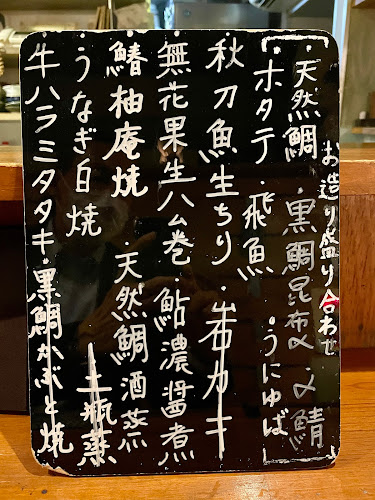 お造り盛り合わせ
・天然鯛・黒鯛昆布〆・〆鯖
・ホタテ・飛魚・うにゆば
秋刀魚生ちり・岩カキ
無花果生ハム巻・鮎濃醤煮
鰆柚庵焼・天然鯛酒蒸
・うなぎ白焼・土瓶蒸
・牛ハラミタタキ・黒鯛かぶと焼